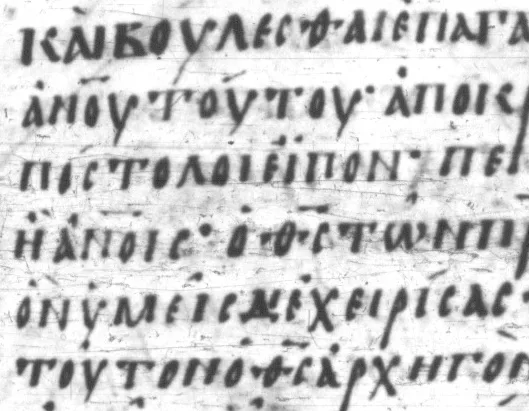 ΚΑΙΒΟΥΛΕΣΘΑΙΕΠΑΓΑ
ΑΝΟΥΤΟΥΤΟΥ· ΑΠΟΚ
ΠΟΣΤΟΛΟΙΕΙΠΟΝ· ΠΕΙ
Η ΑΝΟΙΣ· Ο ΘΣ ΤΩΝΠΡ
ΟΝΥΜΕΙΣΔΙΕΧΕΙΡΙΣΑΣ
ΤΟΥΤΟΝΟΘΣΑΡΧΗΓΟΝ